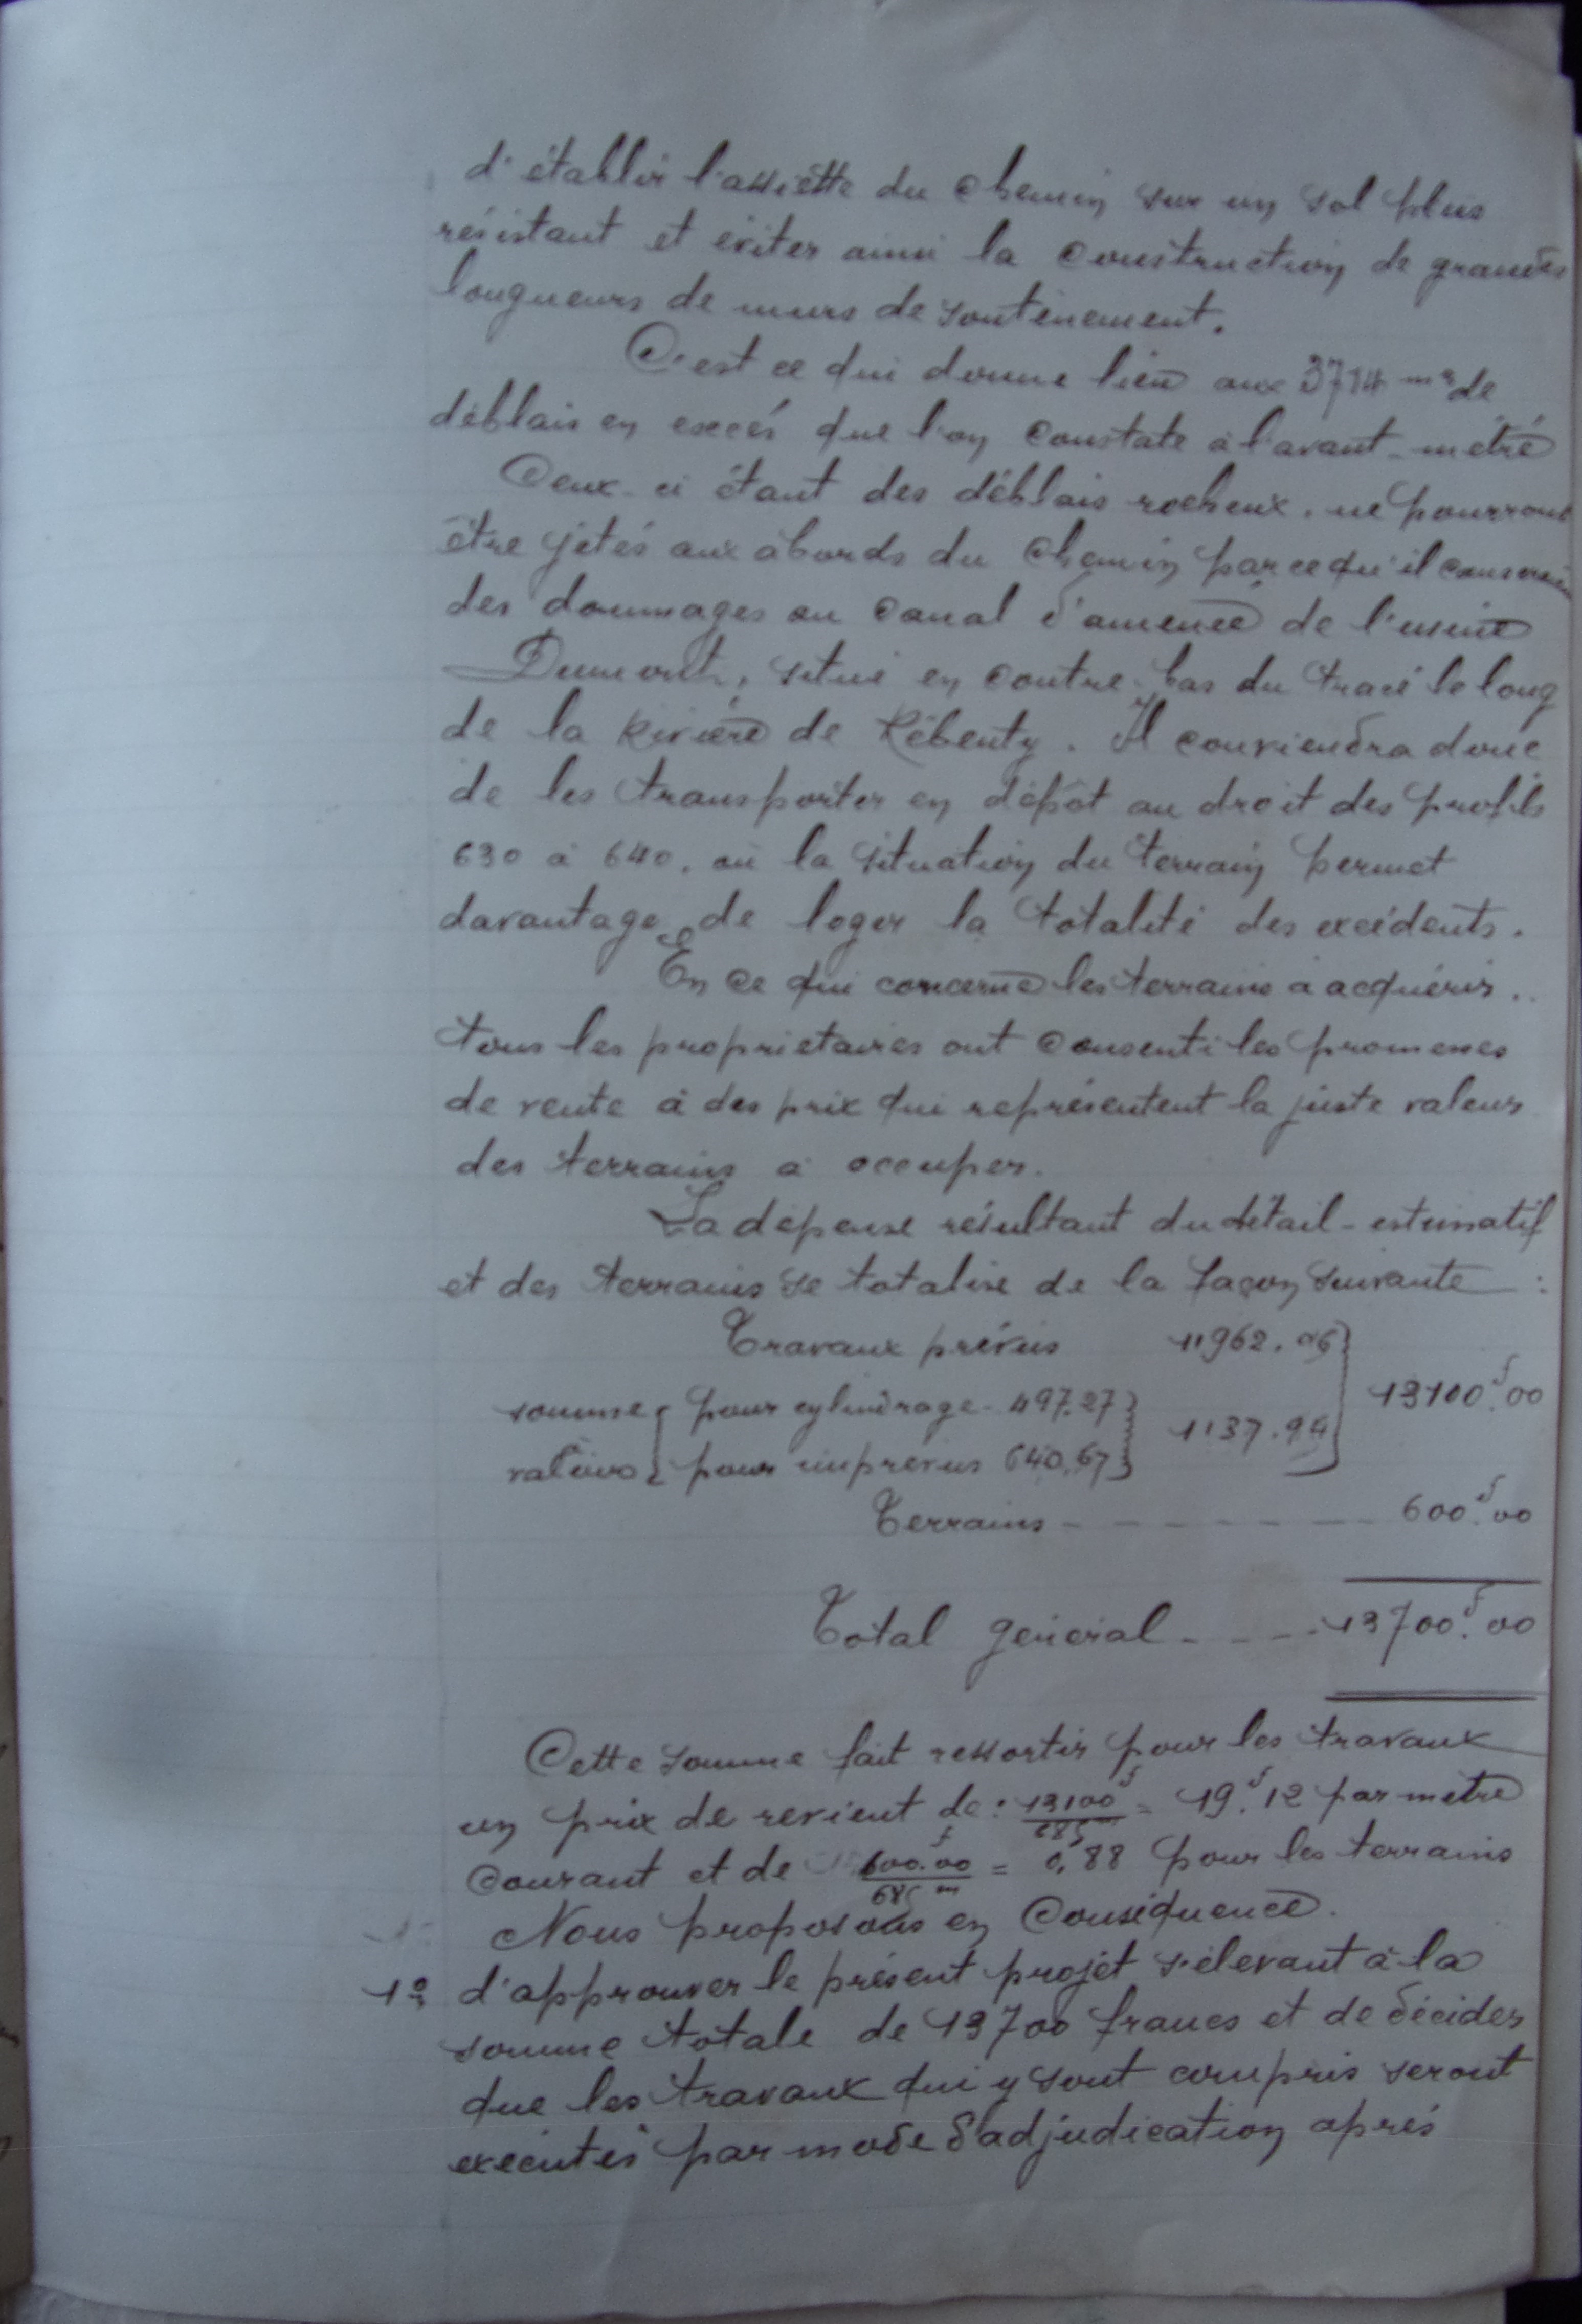 d'établir l'assiette du chemin sur un sol plus
résistant et éviter ainsi la construction de grandes
longueurs de murs de soutènement.
C'est ce qui donne lieu aux 3714 m3 de
déblais en excès que l'on constate à l'avant-métré
Ceux-ci étant des déblais rocheux, ne pourront
être jetés aux abords du chemin parce qu'il
des dommages au canal d'amenée de l'usine
Dumont, situé en contre-bas du tracé le long
de la Rivière de Rébenty. Il conviendra donc
de les transporter en dépôt au droit des profils
630 à 640, où la situation du terrain permet
davantage de loger la totalité des excédents.
En ce qui concerne les terrains à acquérir..
tous les propriétaires ont consenti les promesses
de vente à des prix qui représentent la juste valeur
des terrains à occuper.
La dépense résultant du détail-estimatif
et des terrains se totalise de la façon suivante :
Travaux prévus 11962.06
13100f.00
somme pour cylindrage - 497.27
1137.94
à valoir pour imprévus 640.67
Terrains - - - - - - - 600f.00
Total général - - - - 13700f.00
Cette somme fait ressortir pour les travaux
un prix de revient de : 13100f / 685m = 19f.12 par mètre
courant et de 600f.00 / 685m = 0f.88 pour les terrains
Nous proposons en conséquence.
1º d'approuver le présent projet s'élevant à la
somme totale de 13700 francs et de décider
que les travaux qui y sont compris seront
exécutés par mode d'adjudication après